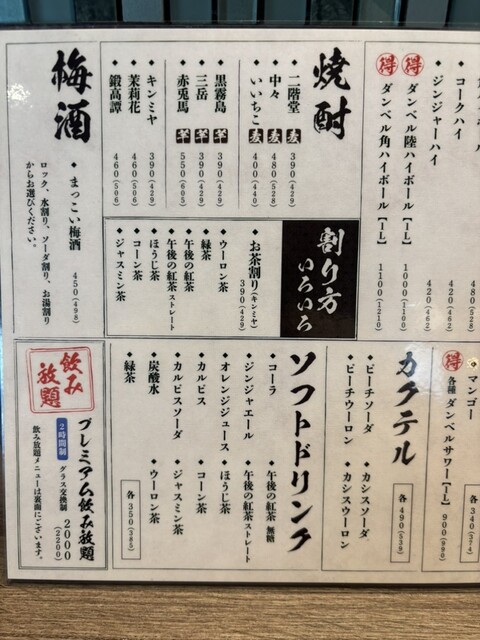 ・コークハイ 420(462)
・ジンジャーハイ 420(462)
得 ダンベル陸ハイボール【1L】 1000(1100)
得 ダンベル角ハイボール【1L】 1100(1210)
焼酎
・二階堂 麦 390(429)
・中々 麦 480(528)
・いいちこ 麦 400(440)
・黒霧島 芋 390(429)
・三岳 芋 390(429)
・赤兎馬 芋 550(605)
・キンミヤ 390(429)
・茉莉花 460(506)
・鍛高譚 460(506)
割り方いろいろ
◆お茶割り(キンミヤ) 390(429)
・ウーロン茶
・緑茶
・午後の紅茶
・午後の紅茶ストレート
・ほうじ茶
・コーン茶
・ジャスミン茶
梅酒
◆まっこい梅酒 450(498)
ロック、水割り、ソーダ割り、お湯割り
からお選びください。
・マンゴー
各340(374)
得 各種 ダンベルサワー【1L】 900(990)
カクテル
・ピーチソーダ ・カシスソーダ
・ピーチウーロン ・カシスウーロン
各490(539)
ソフトドリンク
・コーラ ・午後の紅茶 無糖
・ジンジャエール ・午後の紅茶ストレート
・オレンジジュース ・ほうじ茶
・カルピス ・コーン茶
・カルピスソーダ ・ジャスミン茶
・炭酸水 ・ウーロン茶
・緑茶
各350(385)
飲み放題
プレミアム飲み放題
2時間制 グラス交換制 2000(2200)
飲み放題メニューは裏面にございます。